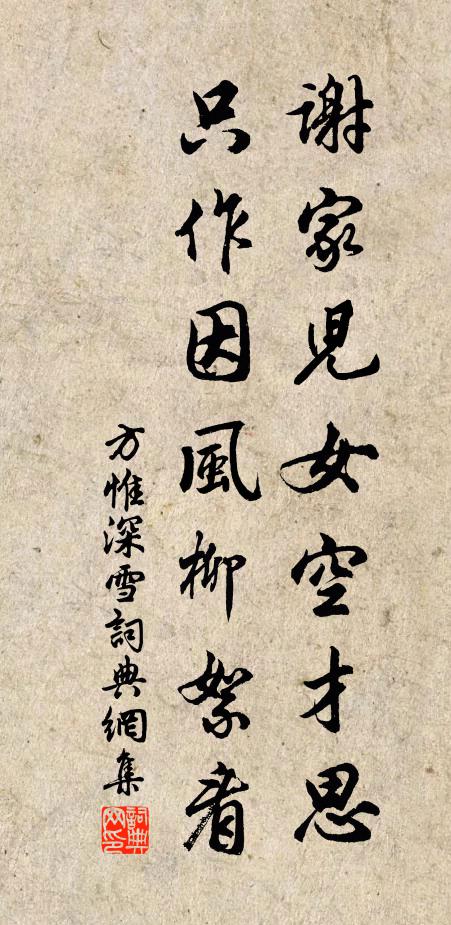 謝家兒女空才思
只作因風柳絮看
方惟深雪詞典網集
詞典網印